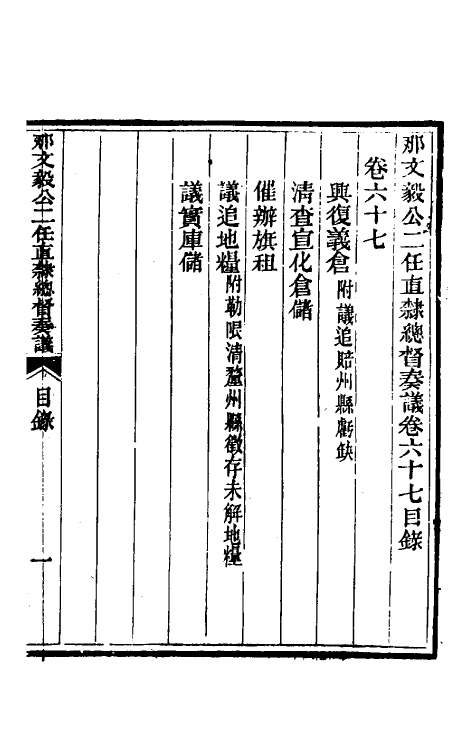 那文毅公二任直隸總督奏議卷六十七目錄
卷六十七
興復義倉附議追賠州縣虧缺
清查宣化倉儲
催辦旗租
議追地糧附勒限清釐州縣徵存未解地糧
議實庫儲
那文毅公二任直隸總督奏議
目錄
一